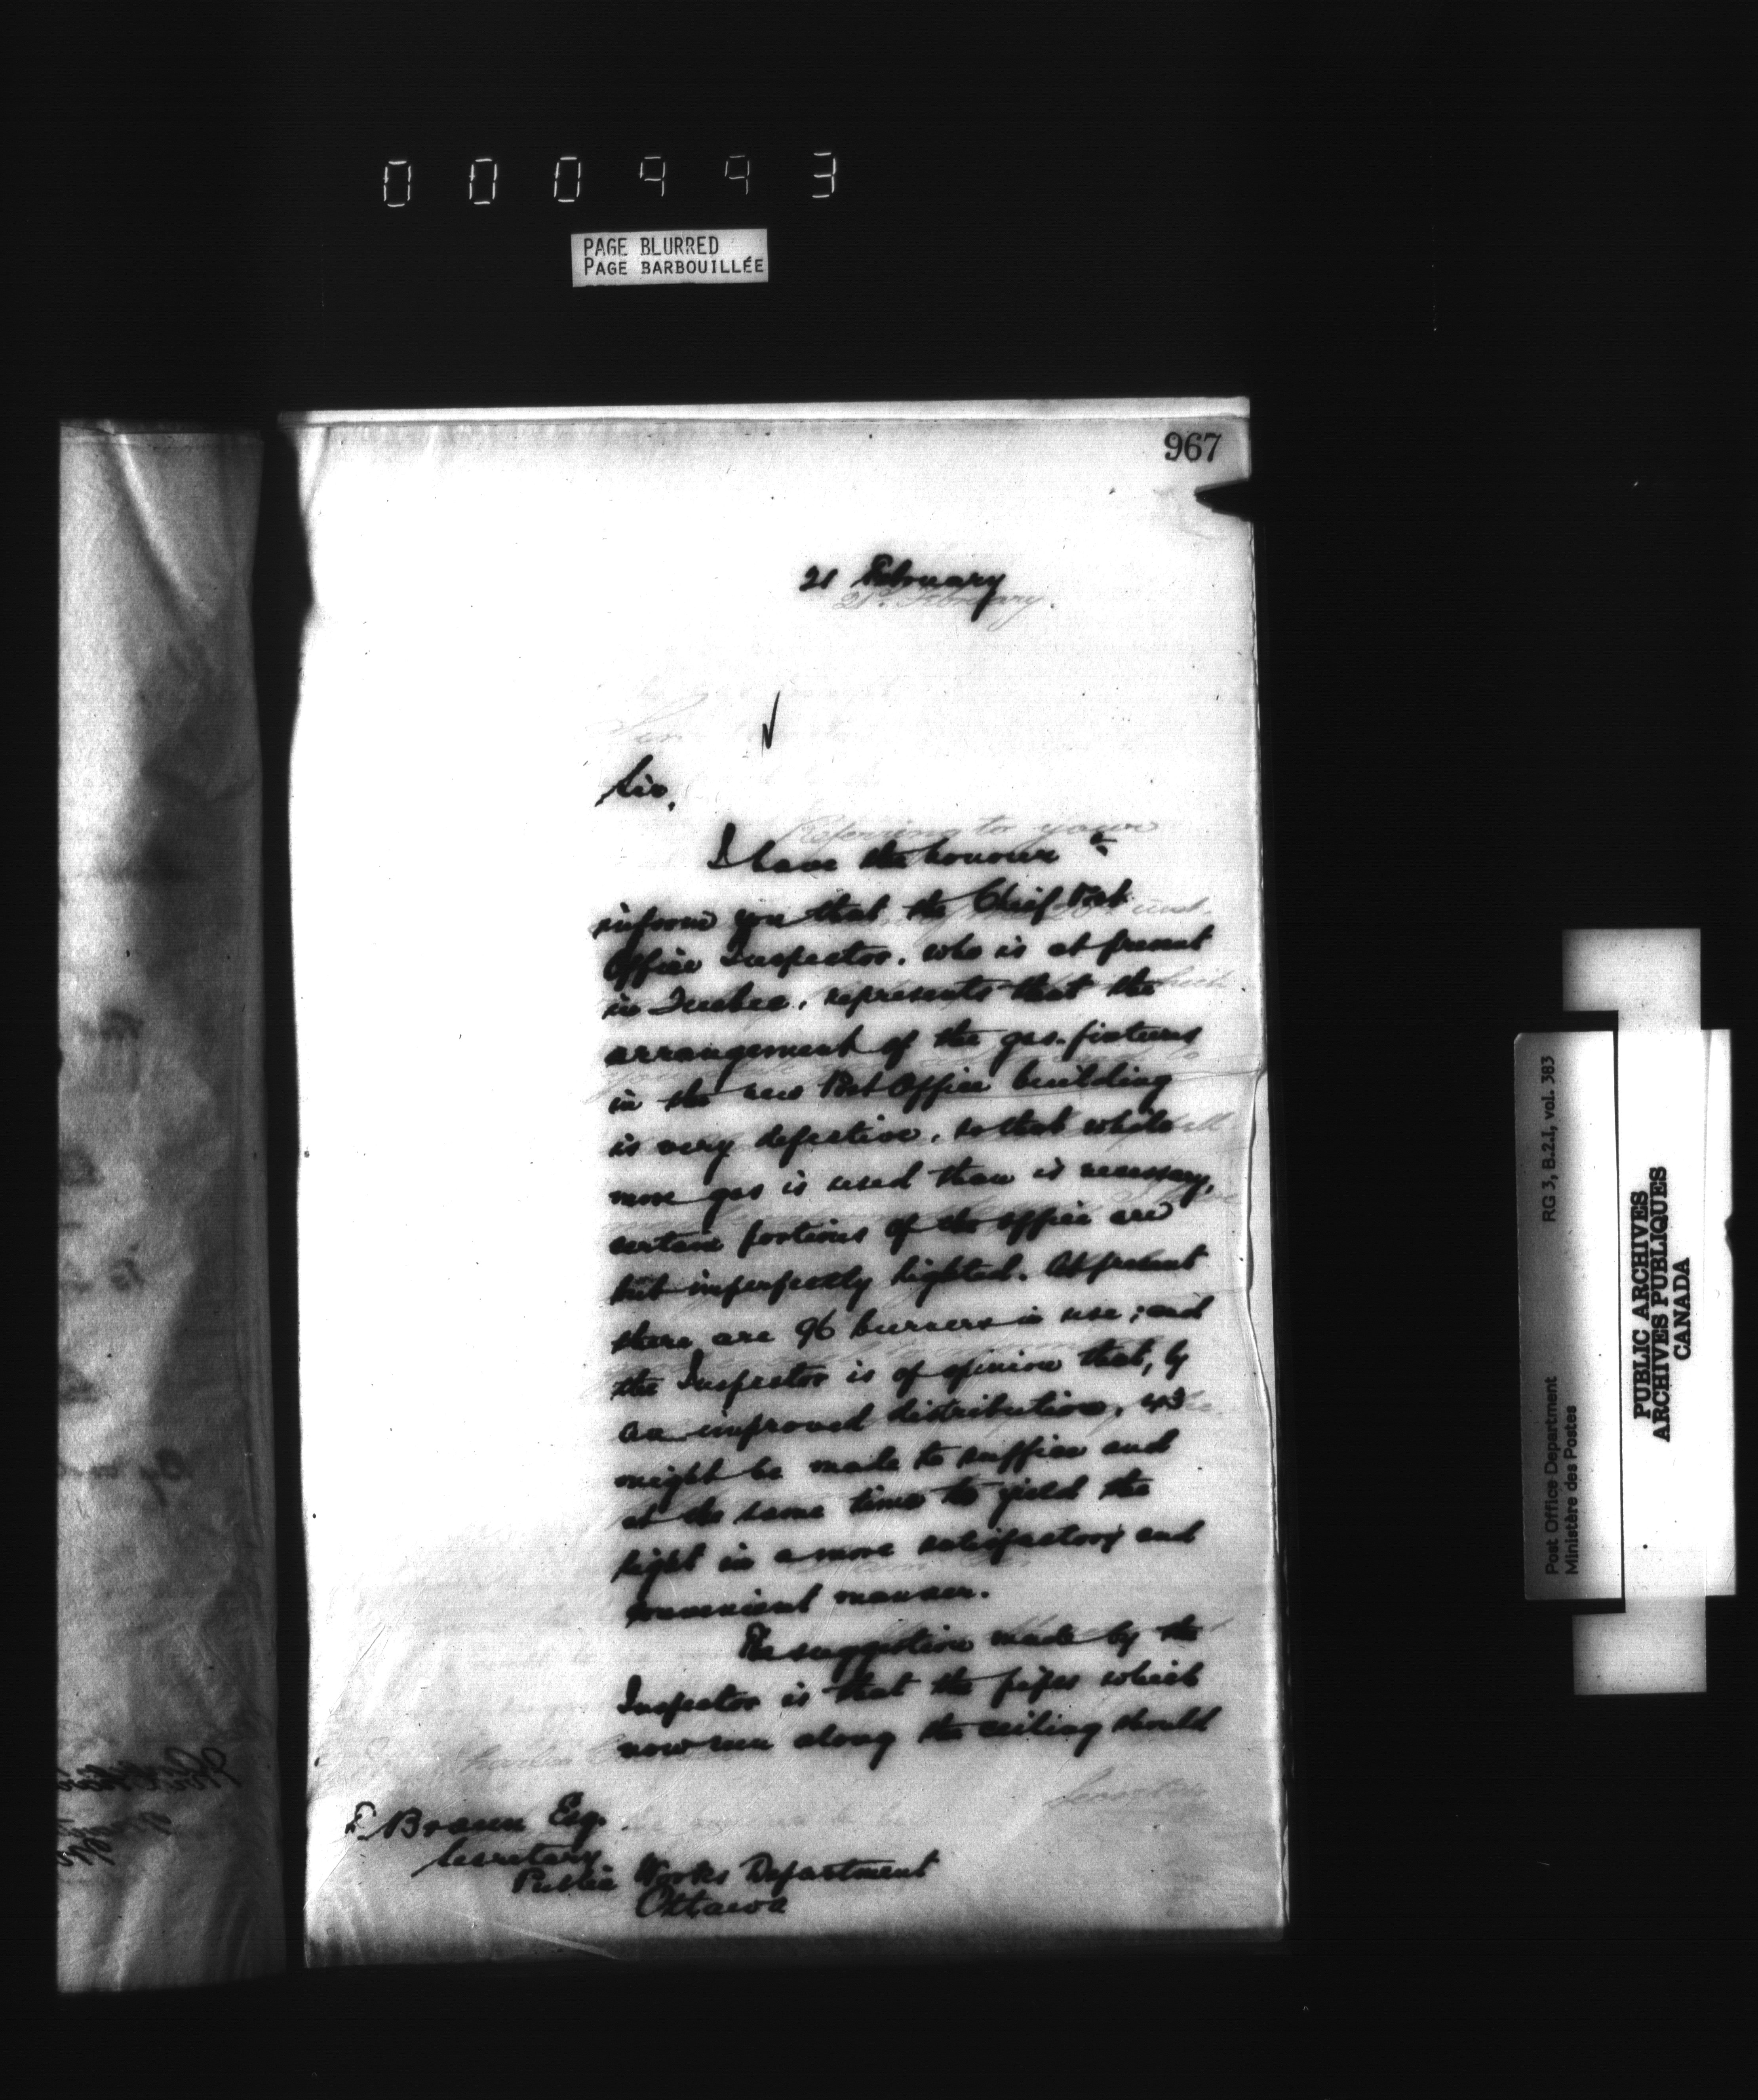 000993
PAGE BLURRED
PAGE BARBOUILLÉE
967
21 February
Sir,
I have the honour to
inform you that the Chief Post
Office Inspector, who is at present
in Quebec, represents that the
arrangement of the gas-fixtures
in the new Post Office building
is very defective, so that while
more gas is used than is necessary,
certain portions of the office are
but imperfectly lighted. At present
there are 96 burners in use; and
the Inspector is of opinion that, by
an improved distribution, 43
might be made to suffice and
at the same time to yield the
light in a more satisfactory and
convenient manner.
The suggestion made by the
Inspector is that the pipes which
now run along the ceiling should
F. Braun Esq.
Secretary
Public Works Department
Ottawa
Post Office Department RG 3, B.2.1, vol. 383
Ministère des Postes
PUBLIC ARCHIVES
ARCHIVES PUBLIQUES
CANADA